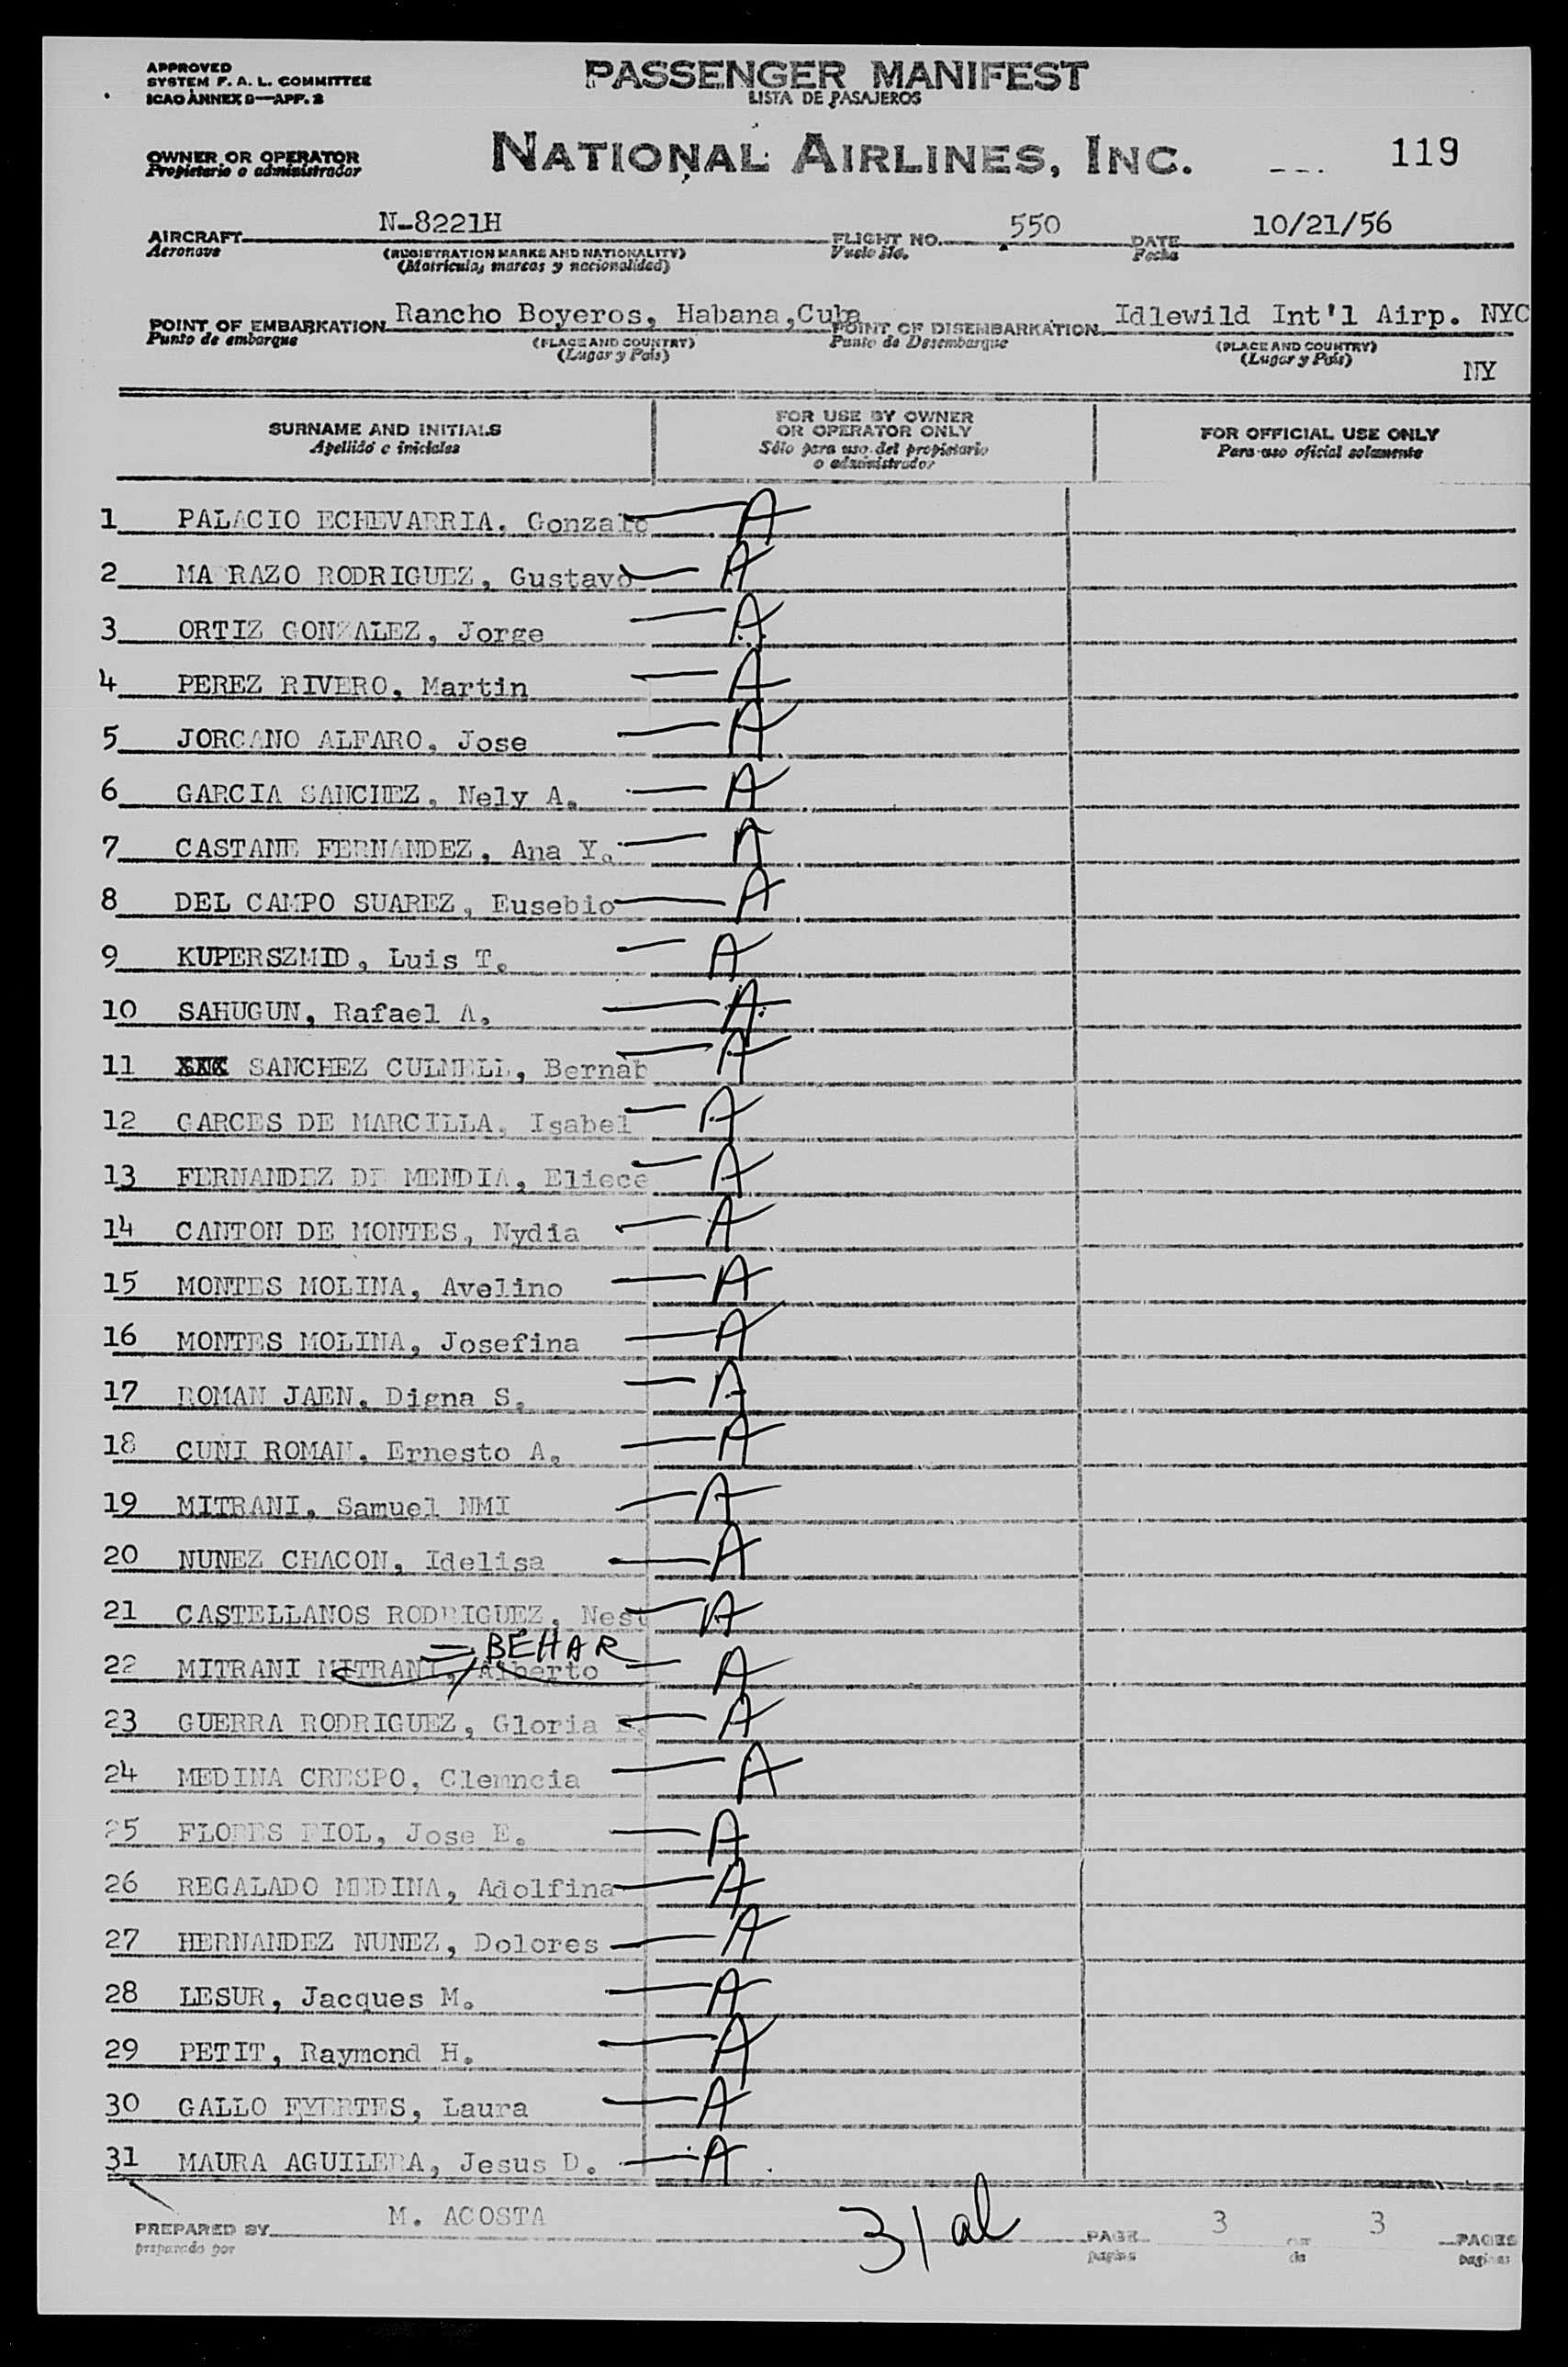 APPROVED
SYSTEM F. A. L. COMMITTEE
ICAO ANNEX 9—APP. 2
PASSENGER MANIFEST
LISTA DE PASAJEROS
OWNER OR OPERATOR
Propietario o administrador
NATIONAL AIRLINES, INC.
119
AIRCRAFT N-8221H FLIGHT NO. 550 DATE 10/21/56
Aeronave (REGISTRATION MARKS AND NATIONALITY) Vuelo No. Fecha
(Matricula, marcas y nacionalidad)
POINT OF EMBARKATION Rancho Boyeros, Habana,Cuba POINT OF DISEMBARKATION Idlewild Int'l Airp. NYC
Punto de embarque (PLACE AND COUNTRY) Punto de Desembarque (PLACE AND COUNTRY)
(Lugar y País) (Lugar y País) NY
SURNAME AND INITIALS
Apellido e iniciales
FOR USE BY OWNER
OR OPERATOR ONLY
Sólo para uso del propietario
o administrador
FOR OFFICIAL USE ONLY
Para uso oficial solamente
1 PALACIO ECHEVARRIA, Gonzalo A
2 MA RAZO RODRIGUEZ, Gustavo A
3 ORTIZ GONZALEZ, Jorge A
4 PEREZ RIVERO, Martin A
5 JORCANO ALFARO, Jose A
6 GARCIA SANCHEZ, Nely A. A
7 CASTANE FERNANDEZ, Ana Y. A
8 DEL CAMPO SUAREZ, Eusebio A
9 KUPERSZMID, Luis T. A
10 SAHUGUN, Rafael A. A
11 XXX SANCHEZ CULMELL, Bernab A
12 GARCES DE MARCILLA, Isabel A
13 FERNANDEZ DE MENDIA, Eliece A
14 CANTON DE MONTES, Nydia A
15 MONTES MOLINA, Avelino A
16 MONTES MOLINA, Josefina A
17 ROMAN JAEN, Digna S. A
18 CUNI ROMAN, Ernesto A. A
19 MITRANI, Samuel NMI A
20 NUNEZ CHACON, Idelisa A
21 CASTELLANOS RODRIGUEZ, Nest A
= BEHAR
22 MITRANI MITRANI, Alberto A
23 GUERRA RODRIGUEZ, Gloria E. A
24 MEDINA CRESPO, Clemncia A
25 FLORES FIOL, Jose E. A
26 REGALADO MEDINA, Adolfina A
27 HERNANDEZ NUNEZ, Dolores A
28 LESUR, Jacques M. A
29 PETIT, Raymond H. A
30 GALLO FYERTES, Laura A
31 MAURA AGUILERA, Jesus D. A
PREPARED BY M. ACOSTA 31 al PAGE 3 OF 3 PAGES
preparado por pagina de paginas